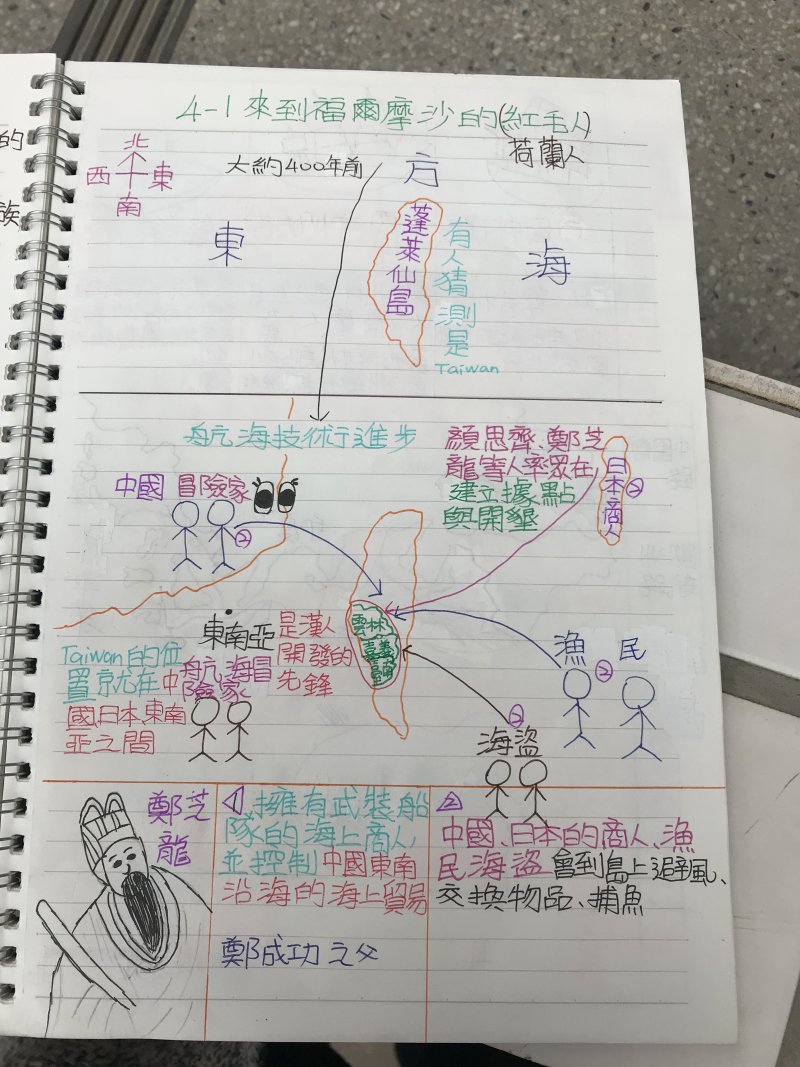 的
族
4-1 來到福爾摩沙的(紅毛人)
荷蘭人
北
西 東
南
大約400年前
東 方 海
蓬萊仙島
有人猜測是
Taiwan
航海技術行進步
中國 冒險家
②
顏思齊、鄭芝
龍等人率眾在
建立據點
與開墾
日本商人
②
雲林
嘉義
東南亞
航海冒
險家
是漢人
開發的
先鋒
Taiwan的位
置就在中
國、日本東南
亞之間
漁 民
②
②
海盜
鄭芝
龍
擁有武裝船
隊的海上商人,
並控制中國東南
沿海的海上貿易
鄭成功之父
中國、日本的商人、漁
民海盜會到島上避風、
交換物品、捕魚